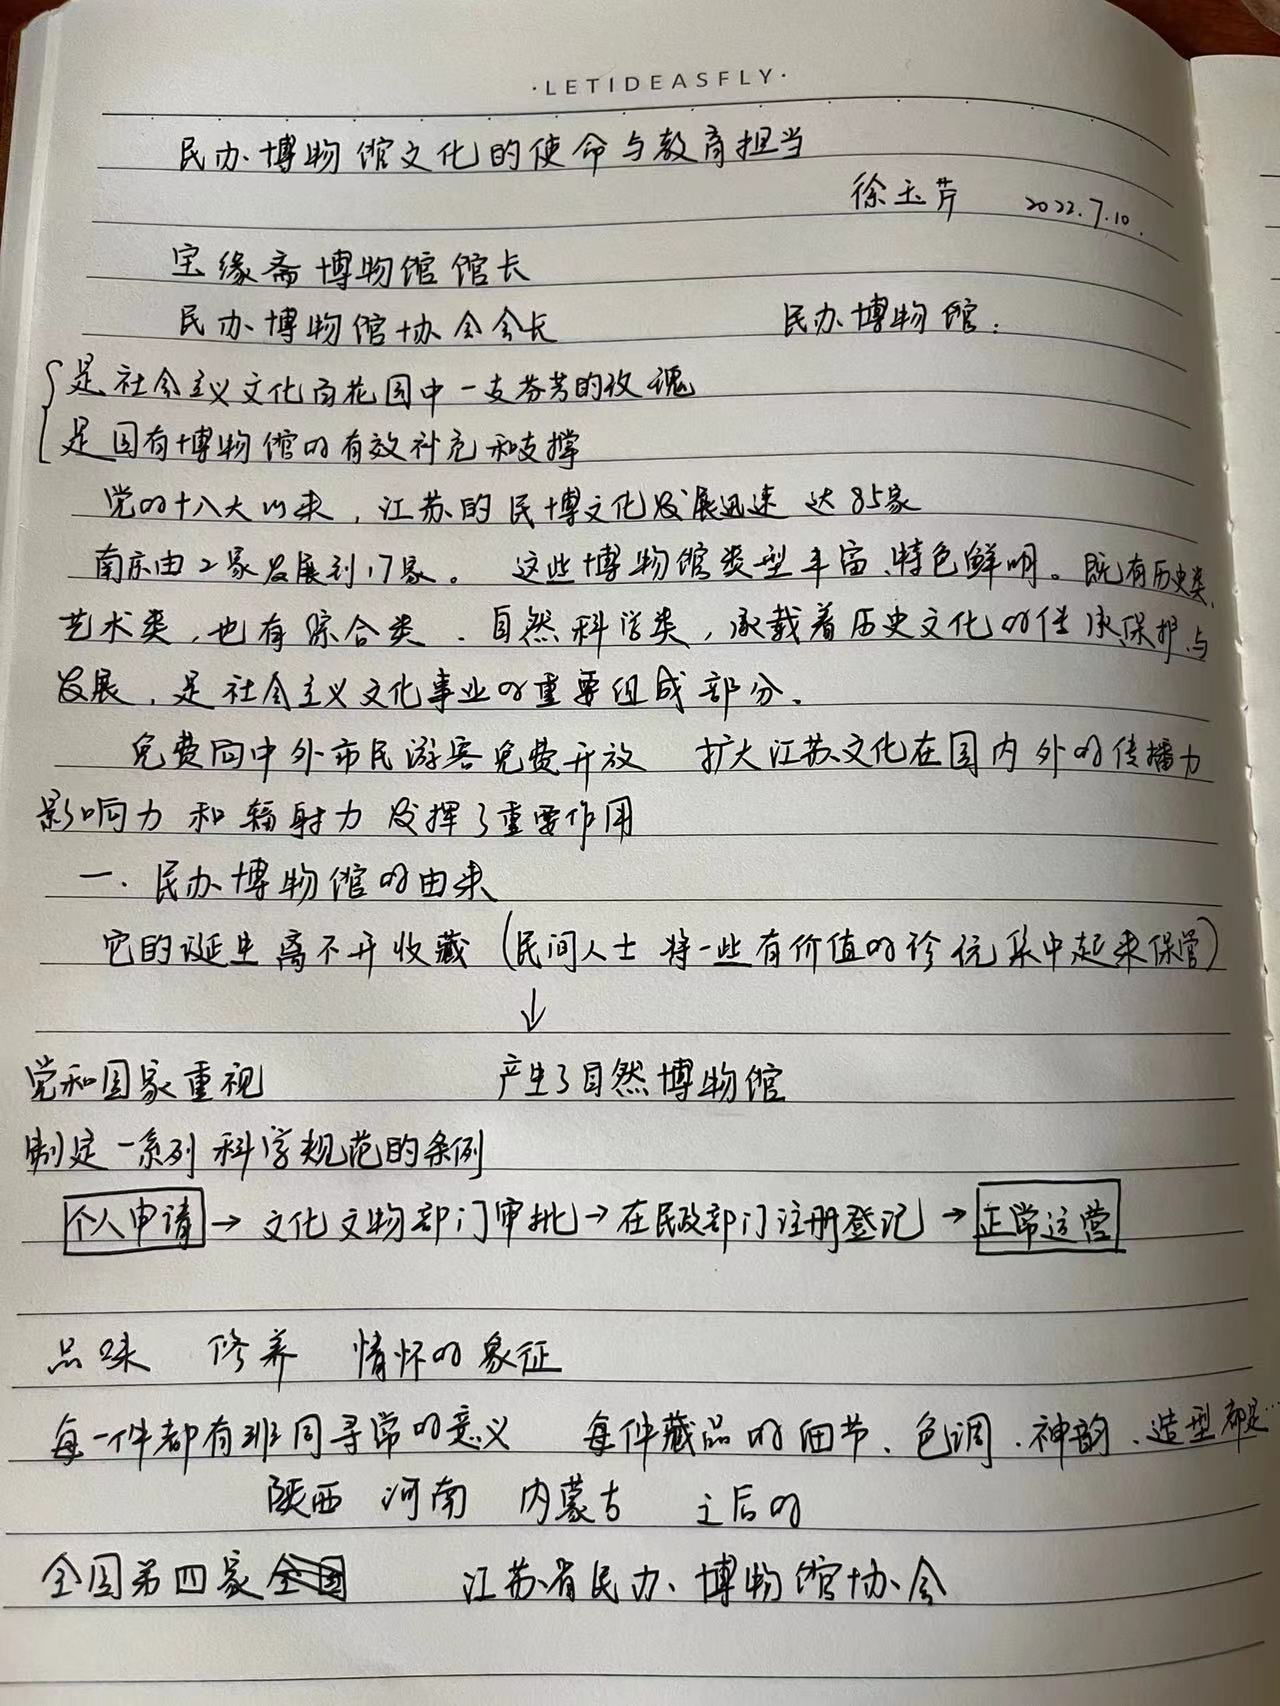 ·LETIDEASFLY·
民办博物馆文化的使命与教育担当
徐玉芹 2022.7.10.
宝缘斋博物馆馆长
民办博物馆协会会长 民办博物馆：
是社会主义文化百花园中一支芬芳的玫瑰
是国有博物馆的有效补充和支撑
党的十八大以来，江苏的民博文化发展迅速 达85家
南京由2家发展到17家。 这些博物馆类型丰富、特色鲜明。既有历史类、
艺术类，也有综合类、自然科学类，承载着历史文化的传承保护与
发展，是社会主义文化事业的重要组成部分。
免费向中外市民游客免费开放 扩大江苏文化在国内外的传播力
影响力和辐射力发挥了重要作用
一、民办博物馆的由来
它的诞生离不开收藏（民间人士将一些有价值的 集中起来保管）
↓
党和国家重视 产生了自然博物馆
制定一系列科学规范的条例
个人申请→文化文物部门审批→在民政部门注册登记→正常运营
品味 修养 情怀的象征
每一件都有非同寻常的意义 每件藏品的细节、色调、神韵、造型都是…
陕西 河南 内蒙古 之后的
全国第四家 江苏省民办博物馆协会